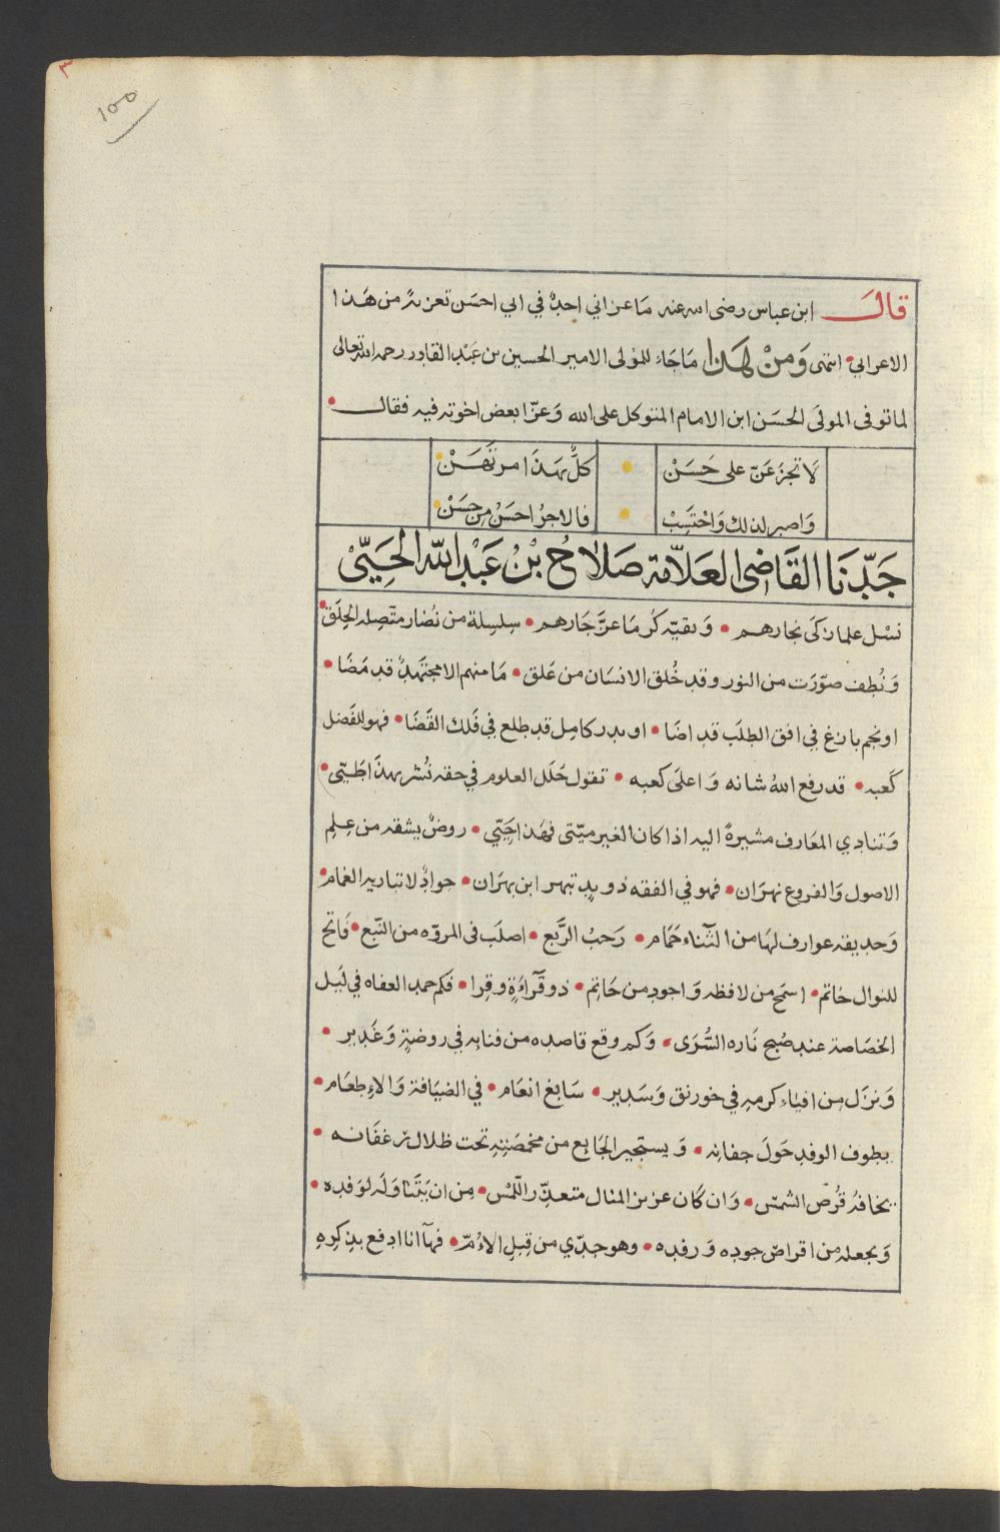 ٣
١٥٥
قالَ ابن عباس رضى الله عنه مَا عزاني احدٌ في ابي احسَن تعزيةً من هَذا
الاعرابي • انتهى وَمِنْ هَذَا مَا جَاءَ للمَولى الامير الحسين بن عَبْد القادر رحمه الله تعالى
لما توفى المولىَ الحسَن ابن الامام المتوكل على الله وَعزّا بعض اخوته فيه فقالــ •
لَا تجزعَنّ على حَسَنْ • كلٌّ بهَذَا مرتهَــنْ •
وَاصبر لذلك وَاحْتَسِبْ • فالاجرُ احسَنُ مِن حسَنْ •
جَدّنَا القَاضِى العَلاَّمَة صَلاَحُ بْنُ عَبْد اللّه الحَيِيّْ
نسْل علما زكَى نجارهــم • وَبقيّة كُرمَا عزَّ جَارهم • سِلسِلة من نُضار متّصِلة الحِلَق •
وَنُطف صوّرَت من النور وقد خُلق الانسَان من عَلق • مَا منهم الا مجتَهدٌ قد مَضَا •
او نجم بازغ في افق الطلَب قد اضَا • او بدر كامِل قد طلع في فَلك القَضَا • فهو للفَضل
كَعبه • قد رفع اللهُ شانه وَاعلىَ كعبه • تقول حُلَل العلوم في حقه نُشر بهذَا طَيّى •
وَتنادي المعَارف مشيرةً اليه اذا كان الغير ميّتى فهَذا حَيّي • روضٌ يشقه من عِلم
الاصول وَالفروع نهرَان • فهو في الفقه ذو يدٍ تبهر ابن بهرَان • جوادٌ لا تباريه الغمام •
وَحديقة عوارف لهَا من الثّناء حَمَام • رَحبُ الرَّبع • اصلَب فى المروّه من النّبع • فَاتح
للنوال حَاتم • اسمَح من لافظه وَاجود من حَاتِم • ذو قرَآءَةٍ وقِرا • فكم حمد العفاه في ليَل
الخصَاصة عند صُبح نَاره السُّرَى • وَكم وقع قاصده من فنايه في روضةٍ وَغَدير •
وَنزل من افيَاء كرمهِ في خورنق وَسَدير • سَابغ انعَام • في الضيَافة وَالاِطعَام •
يطوف الوفد حَولَ جفانه • وَيستَجير الجَايع من مخمصَتِهِ تحت ظلال رغفَانــه •
يخافهُ قُرصَ الشمسْ • وَان كَان عزيز المنال متعذّر اللّمْس • مِن ان يَتَناوَلَه لوَفده •
وَيجعله من اقراص جوده وَرفده • وهو جدّي من قِبلِ الاُمّ • فهآ انا ادفع بذِكرِهِ